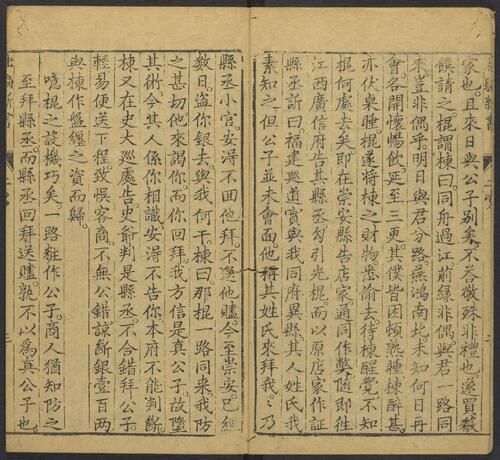 家也且來日與公子別矣不各敬殊非禮也遂買殽
饌請之棍謂棟曰同舟過江前緣非偶與君一路同
來豈非偶乎明日與君分路燕鴻南北未知何日再
會各開懷暢飲延至三更其僕皆困頓熟睡棟醉甚
亦伏桌睡棍遂將棟之財物悉偷去待棟醒覺不知
棍何處去矣即在崇安縣告店家通同作弊隨即往
江西廣信府告其縣丞勾引光棍而以原店家作証
縣丞訴曰福建巡道實與我同府異縣其人姓氏我
素知之但公子並未會面他稱其姓氏來拜我我乃
縣丞小官安得不回他拜不送他贐今至崇安已經
數日盜你銀去與我何干棟曰那棍一路同來我防
之甚切他來謁你而你回拜我方信是真公子故墮
其術今其人係你相識安得不告你本府不能判斷
棟又在史大巡處告史爺判是縣丞不合錯拜公子
輕易便送下程致悞客商不無公錯諒斷銀壹百兩
與棟作盤纏之資而歸
噫棍之設機巧矣一路粧作公子商人猶知防之
至拜縣丞而縣丞回拜送贐孰不以為真公子也